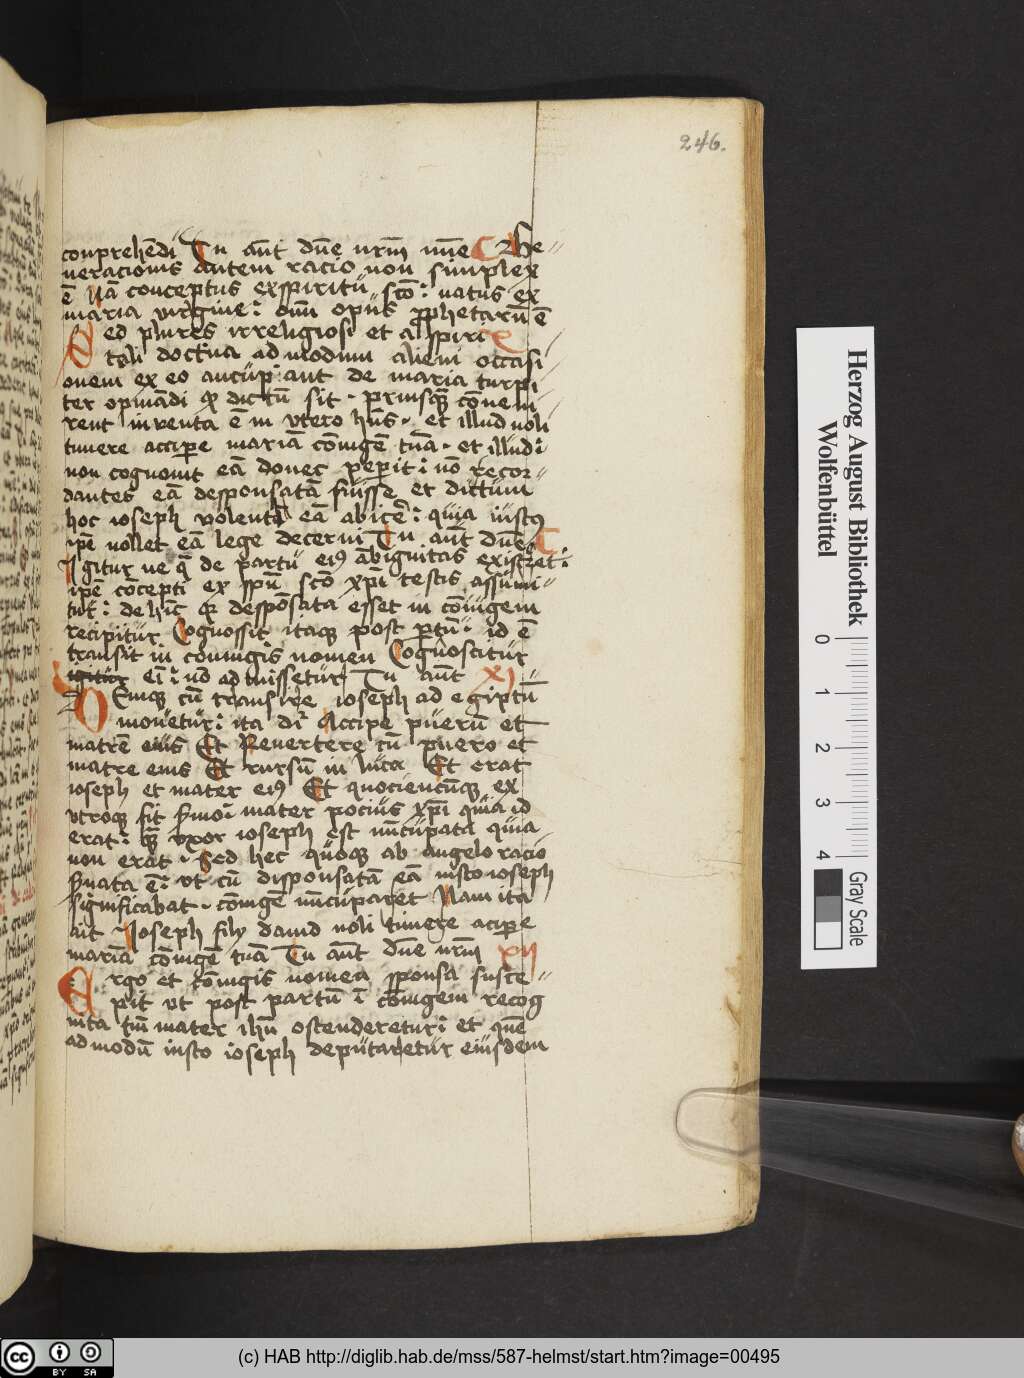 246.
conprehēdi Tu aūt dn̄e nrm̄ mn̄e Ge-
neracionis autem racio non simplex
ē Nā conceptus ex spiritū scō: natus ex
maria virgine: om̄ opus prophetarū ē
Sed plures irreligiosi et a spiri X
tali doctīna admodum alieni occasi
onem ex eo aucup̄ant de maria turpi
ter opinādi qd dictū sit · priusq̄ cōueni
rent inventa ē in vtero hn̄s · et illud noli
timere accipe mariā cōiugē tuā · et illud:
non cognouit eā donec peperit: nō recor-
dantes eā desponsatā fuisse et dictum
hoc ioseph volente eā abicē: quia iustus
ip̄e nollet eā lege decerni Tu aūt dn̄e
Igitur ne q̄ de partu eiꝰ ābiguitas existeret:
ip̄e cōcepti ex sp̄u scō xp̄i testis assumi-
tur: dehinc qr despōsata esset in cōiugem
recipitur Cognossit itaqꝫ post p̄tū: id ē
transit in coniugis nomen Cognoscitur
igitur ei: nō admissetur Tu aūt XI
Deniqꝫ cū transire ioseph ad egiptū
monetur: ita dr̄ Accipe puerū et
matrē eius Et Revertere cū puero et
matre eius Et rursū in luca Et erat
ioseph et mater eiꝰ Et quociencūqꝫ ex
vtroqꝫ fit s̄moī mater pocius xp̄i quia id
erat: q̄ vxor ioseph est nūcupata quia
non erat · Sed hec quoqꝫ ab angelo racio
s̄uata ē: vt cū disponsatā eā iusto ioseph
significabat · cōiugē nūcuparet Nam ita
ait Ioseph fily dauid noli timere acipe
mariā cōiugē tuā Tu aūt dn̄e nrm̄ XII
Ergo et cōiugis nomen sponsa susce-
pit vt post partū ī cōiugem recog
nita tm̄ mater ihū ostenderetur: et quē
admodū iusto ioseph deputaretur eiusdem
Herzog August Bibliothek
Wolfenbüttel
0 1 2 3 4
Gray Scale
cc BY SA
(c) HAB http://diglib.hab.de/mss/587-helmst/start.htm?image=00495